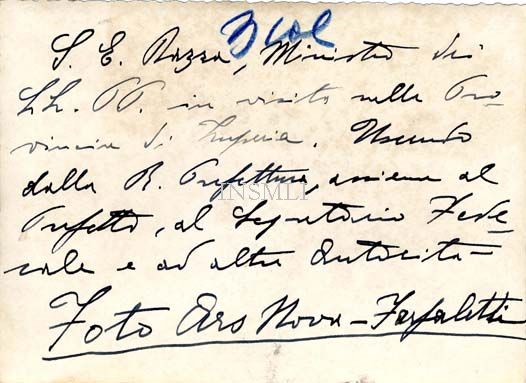 S. E. Razza, Ministro dei
LL. PP. in visita nella Pro-
vincia di Imperia. Uscendo
dalla R. Prefettura, assieme al
INSMLI
Prefetto, al Segretario Fede-
rale e ad altre Autorità -
Foto Ars Nova - Farfaletti